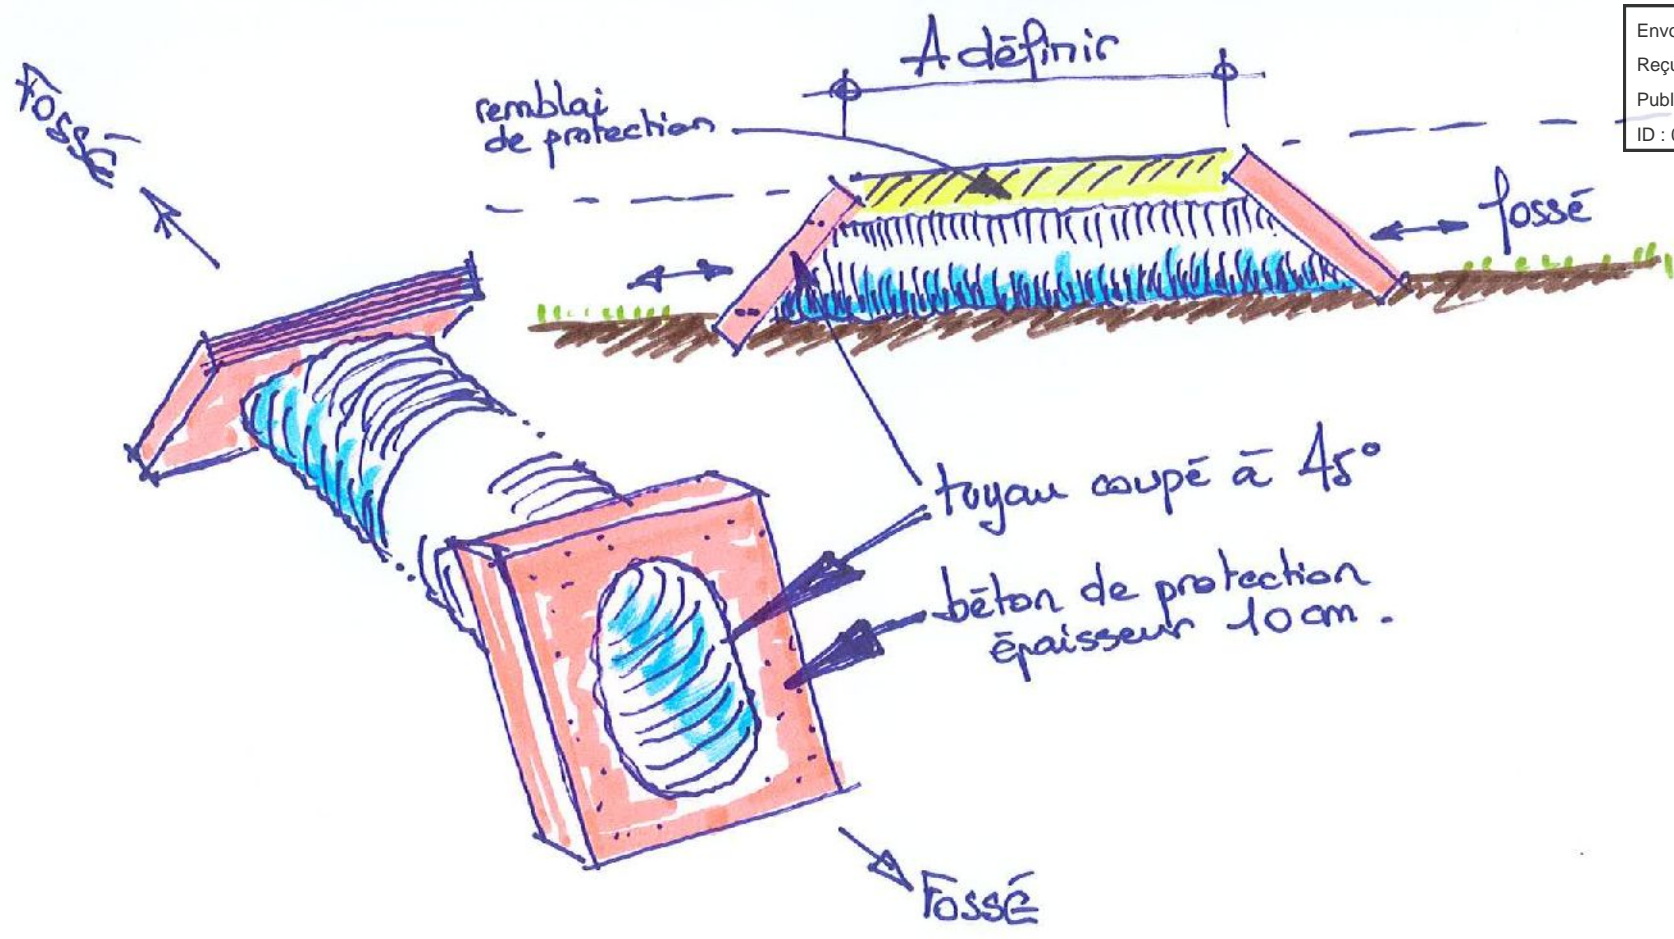 Fossé
A définir
remblai
de protection
Reçu
Publ
ID :
fossé
tuyau coupé à 45°
béton de protection
épaisseur 10 cm.
Fossé